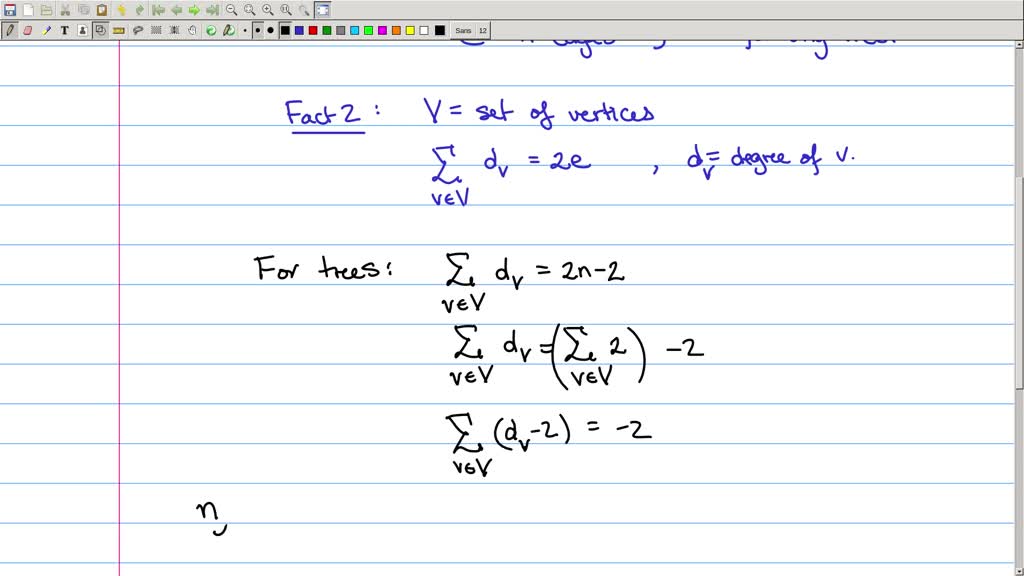 Sans 12
Fact 2 : V = set of vertices
∑ d_v = 2e , d_v = degree of v.
v∈V
For trees: ∑ d_v = 2n-2
v∈V
∑ d_v = (∑ 2) -2
v∈V v∈V
∑ (d_v-2) = -2
v∈V
n